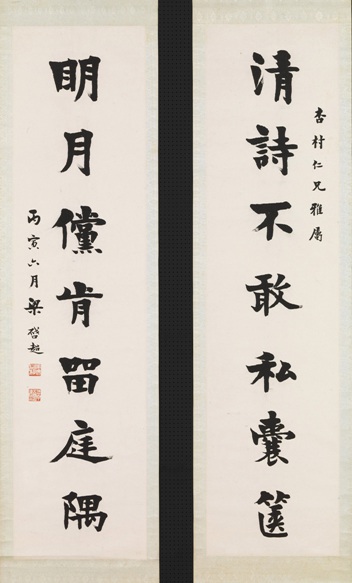 杏村仁兄雅屬
清詩不敢私囊篋
明月儻肯留庭隅
丙寅六月梁啓超